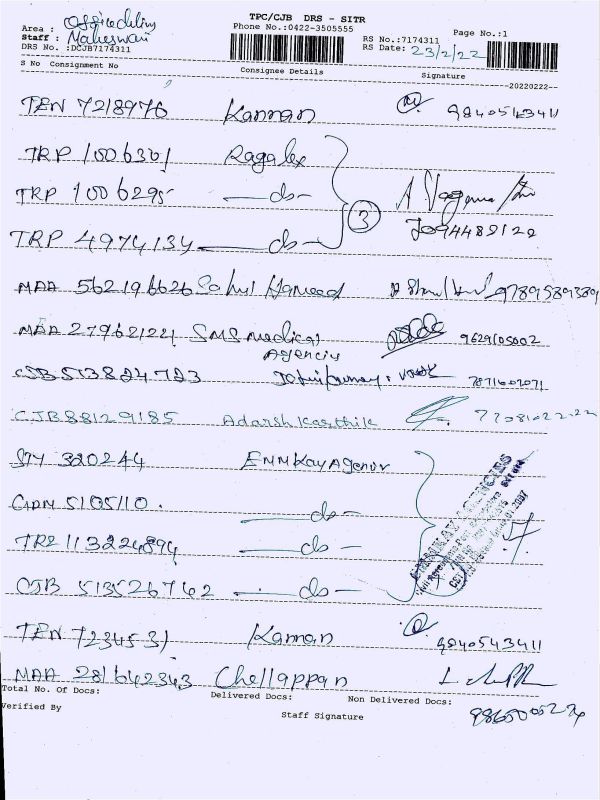 TPC/CJB DRS - SITR
Phone No.:0422-3505555
Area : Office
Staff : Maheswari
DRS No. :DCJB7174311
RS No.:7174311
Page No.:1
RS Date: 23/2/22
S No Consignment No Consignee Details Signature
20220222
TEN 7218976 Kannan 9840543411
TRP 1006301 Ragalex
TRP 1006295 — do —
3
TRP 4974134 — do —
7094489122
MAA 562196626 Sahul Hameed 9789589389
MAA 27962124 SMS Medical 9629105002
Agencies
CJB 513824723 7871602071
CJB88129185 Adarsh Karthik
STY 320244 EMM Kay Agency
5105110 — do —
TRZ 113224894 — do —
CJB 513526762 — do —
TEN 7234531 Kannan 9840543411
MAA 281642343 Chellappan
Total No. Of Docs: Delivered Docs: Non Delivered Docs:
Verified By Staff Signature